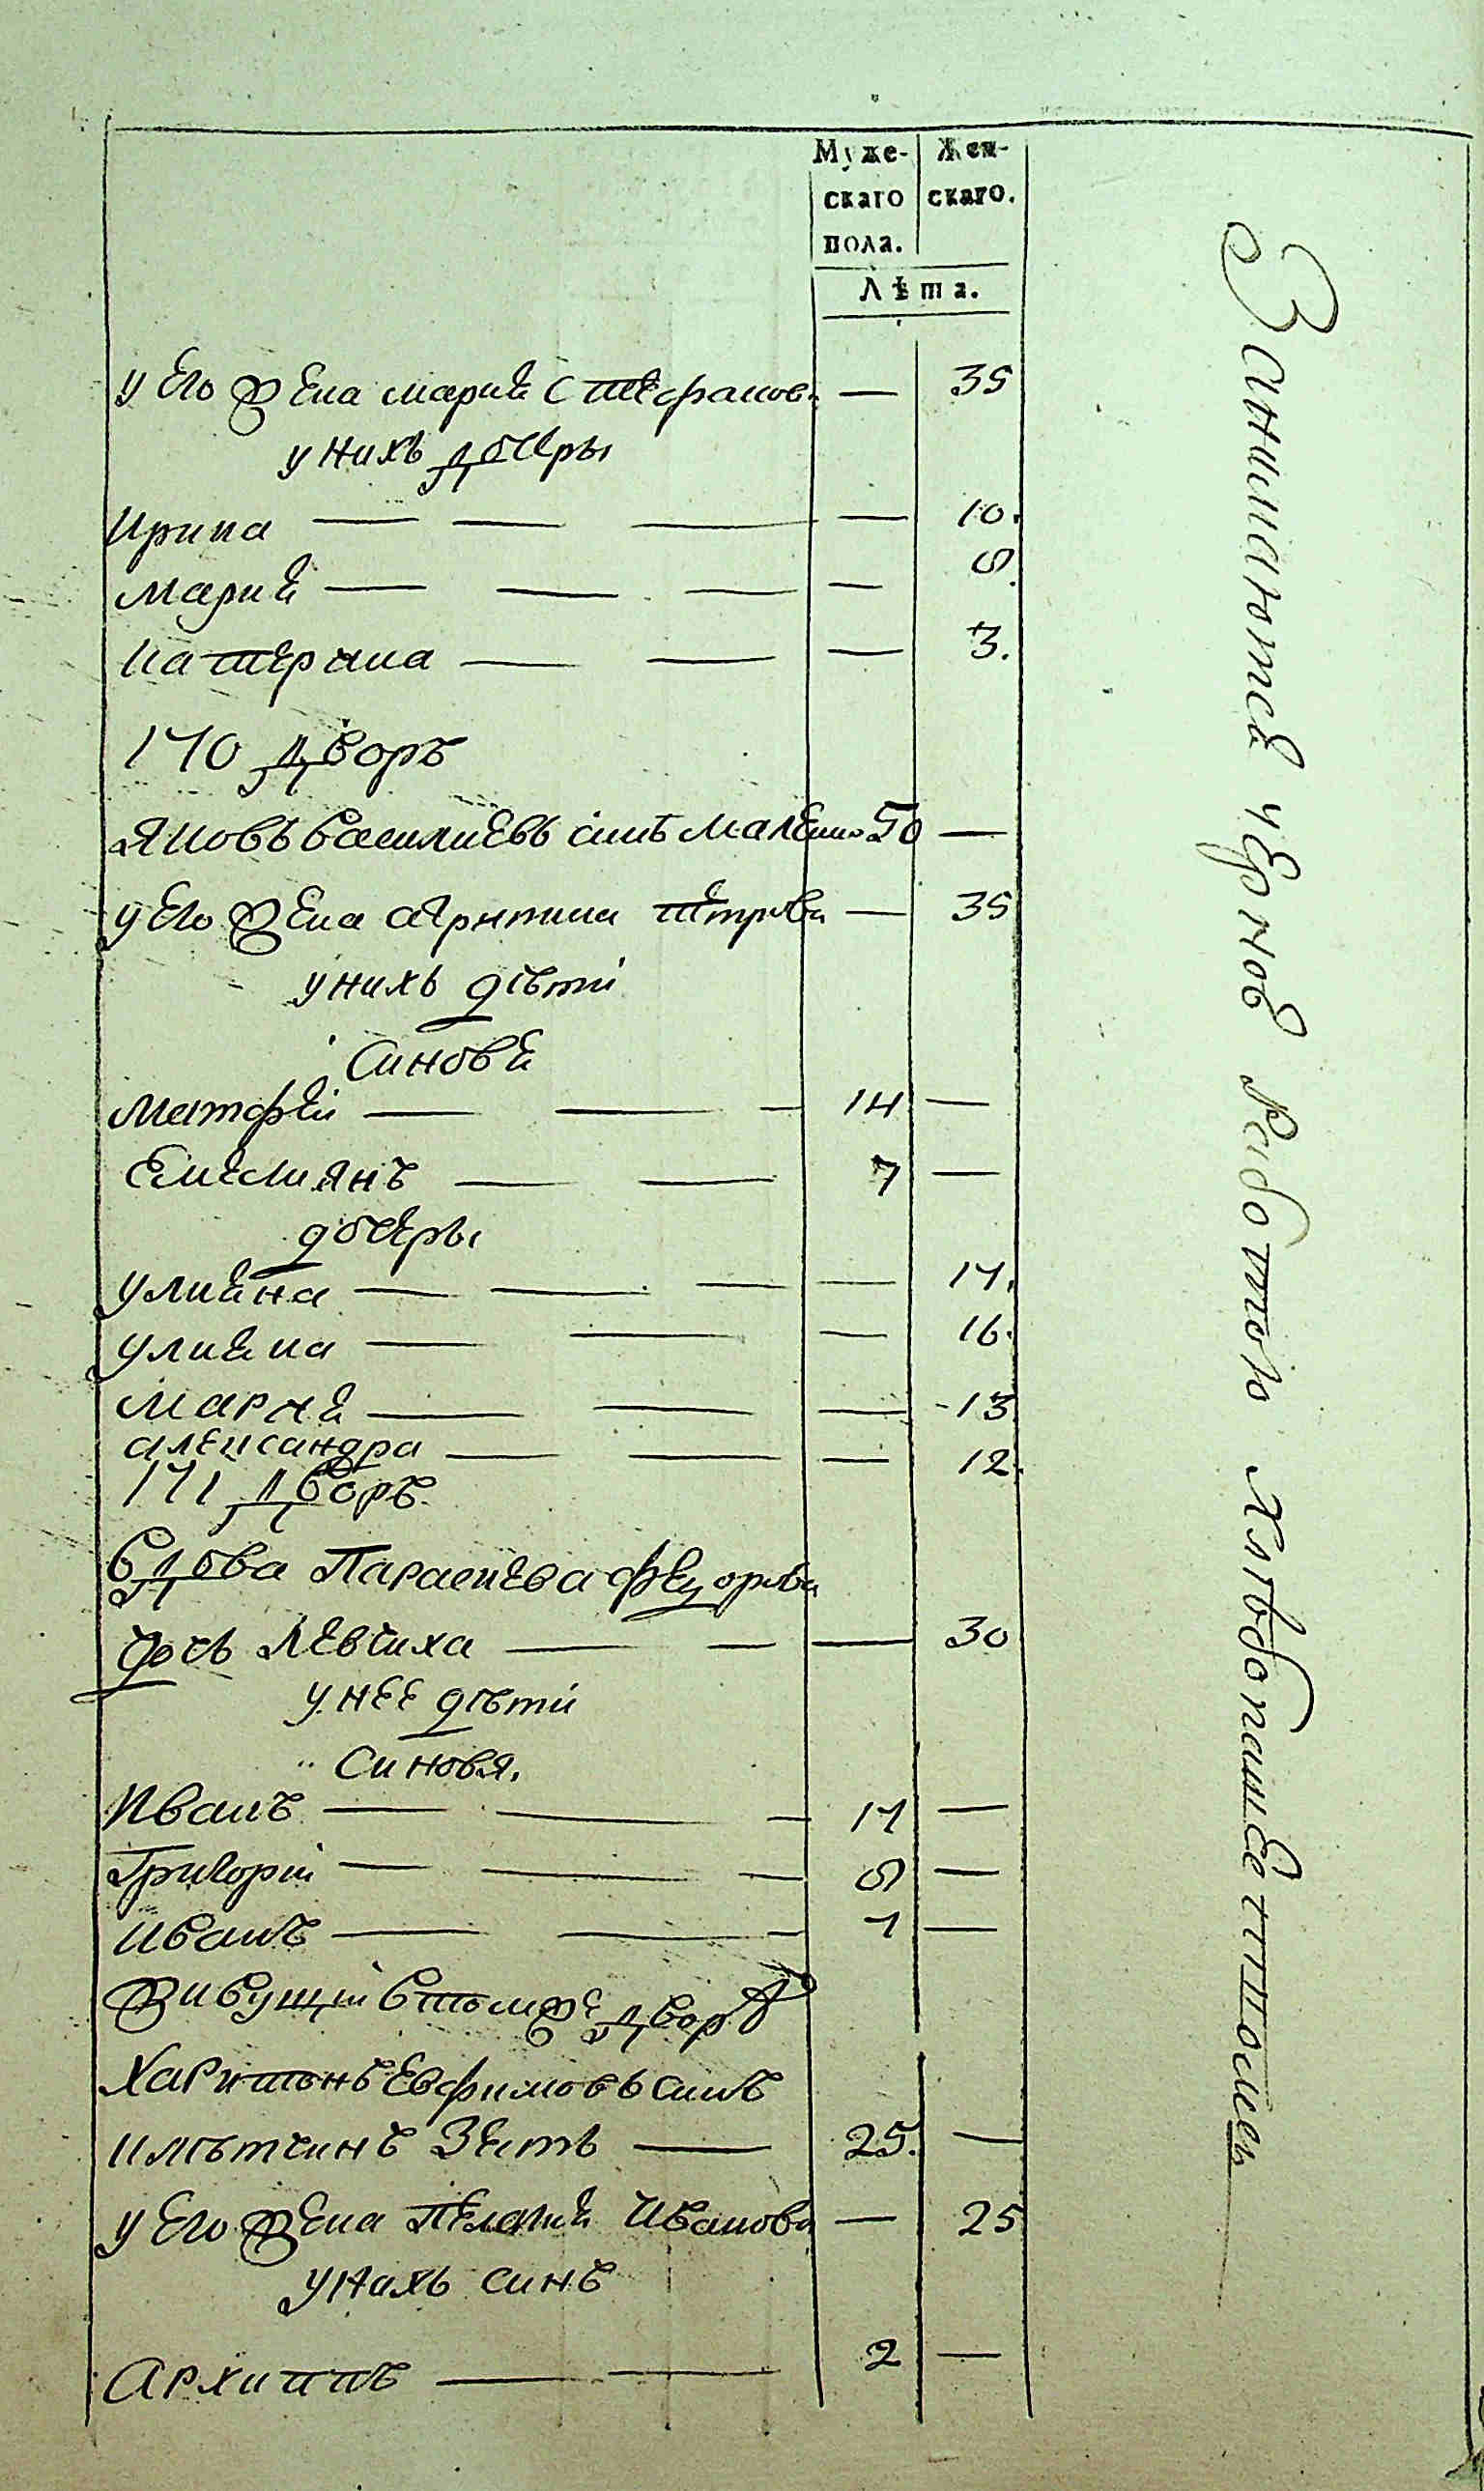 Муже- Жен-
скаго скаго.
пола.
Лѣта.
у его жена мария Стефанов. — 35
у нихъ дочеры
Ирина — 10.
мария — 8.
катерина — 3.
170 дворъ
Яковъ василиевъ синъ 50 —
у его жена Петрова — 35
у нихъ дѣти
Синовя
Матфей 14 —
Емелиянъ 7 —
дочеры
улияна — 17.
улияна — 16.
мария — 13
александра — 12.
171 дворъ
Вдова Параскева Федорова
дочь Левчиха — 30
у нее дѣти
синовя.
Иванъ 17 —
Григорий 8 —
иванъ 7 —
Живущий втомже дворѣ
Харитонъ Евфимовъ синъ
зять 25. —
у его жена Пелагия Иванова — 25
унихъ синъ
Архиппъ 2 —
Занимаются черною работою хлѣбопашетвомъ